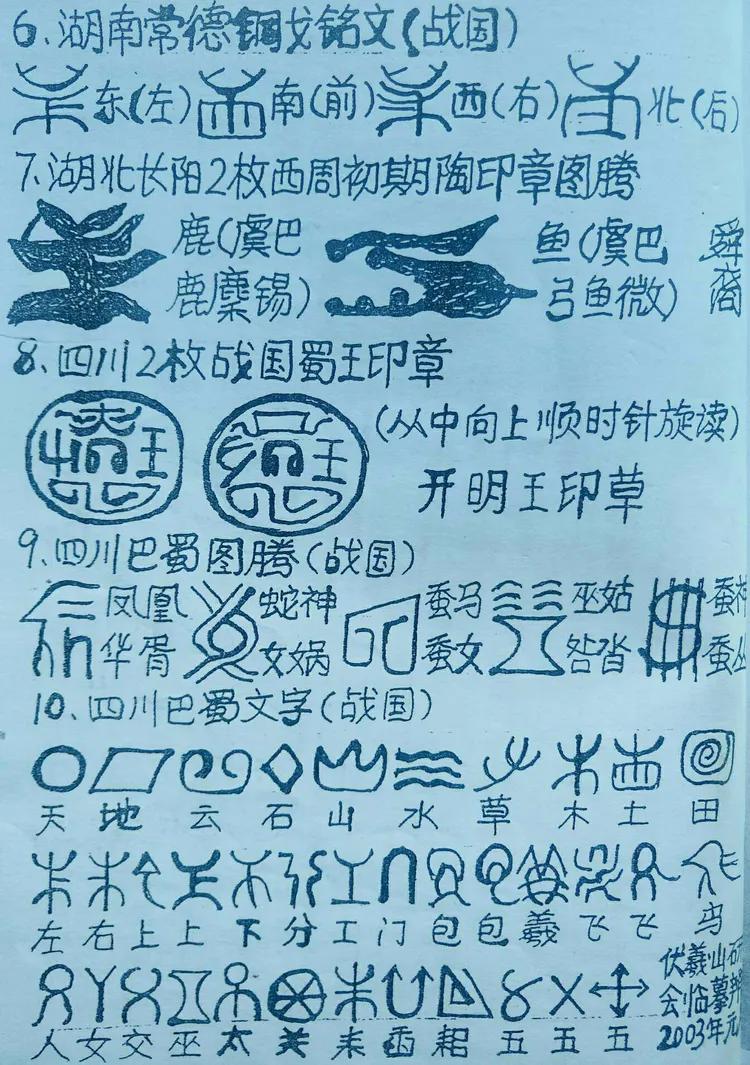 6、湖南常德铜戈铭文(战国)
东(左) 南(前) 西(右) 北(后)
7、湖北长阳2枚西周初期陶印章图腾
鹿(虞巴 鱼(虞巴 舜
鹿麇锡) 弓鱼微) 裔
8、四川2枚战国蜀王印章
(从中向上顺时针旋读)
王 王
开明王印草
9、四川巴蜀图腾(战国)
凤凰 蛇神 蚕马 巫姑 蚕神
华胥 女娲 蚕女 咎沓 蚕丛
10、四川巴蜀文字(战国)
天 地 云 石 山 水 草 木 土 田
左 右 上 上 下 分 工 门 包 包 羲 飞 飞 鸟
人 女 交 巫 太 关 耒 臿 耜 五 五 五
伏羲山研
会临摹
2003年元